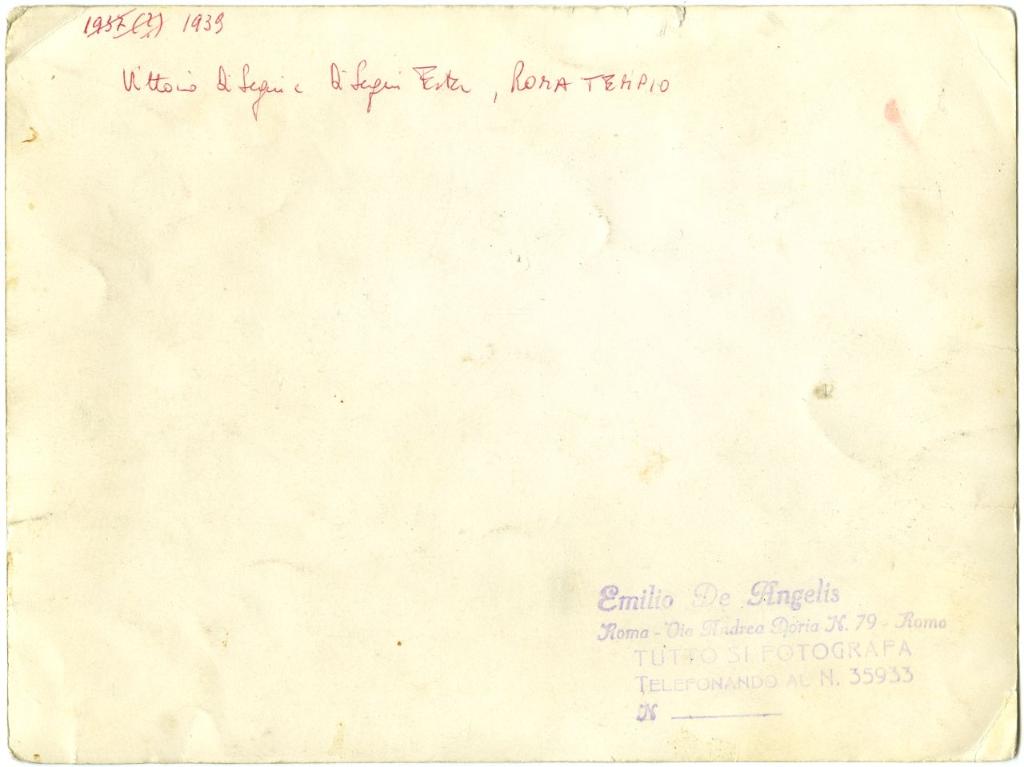 1937(?) 1939
Vittorio Di Segni e Di Segni Ester, ROMA TEMPIO
Emilio De Angelis
Roma - Via Andrea Doria N. 79 - Roma
TUTTO SI FOTOGRAFA
TELEFONANDO AL N. 35933
N